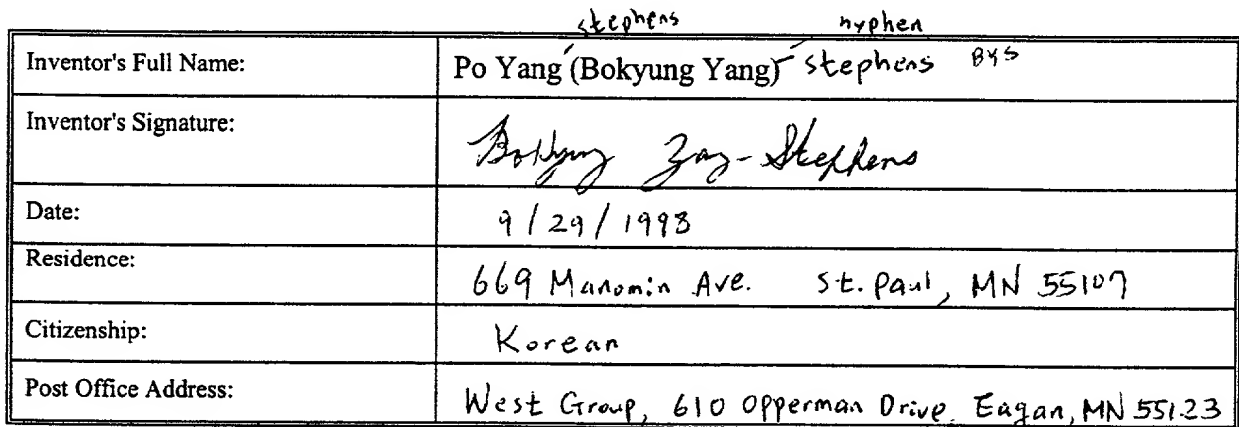 stephens hyphen
Inventor's Full Name: Po Yang (Bokyung Yang)- Stephens BYS
Inventor's Signature: Bokyung Yang-Stephens
Date: 9/29/1998
Residence: 669 Manomin Ave. St. Paul, MN 55107
Citizenship: Korean
Post Office Address: West Group, 610 Opperman Drive, Eagan, MN 55123